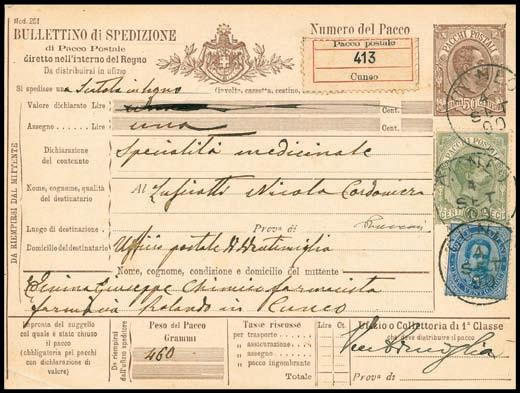 Mod. 251
BULLETTINO di SPEDIZIONE
di Pacco Postale
diretto nell'interno del Regno
Da distribuirsi in ufizio
Numero del Pacco
Pacco postale
413
Cuneo
PACCHI POSTALI
Si spedisce una Scatola in legno (involto, cassetta, cestino,
Valore dichiarato Lire Cent.
Assegno Lire una Cent.
Dichiarazione del contenuto
Specialità medicinale
Nome, cognome, qualità del destinatario
Al Nicola
Luogo di destinazione
Prova di
Domicilio del destinatario
Ufficio postale
Nome, cognome, condizione e domicilio del mittente
Giuseppe Chimico farmacista
farmacia in Cuneo
DA RIEMPIRSI DAL MITTENTE
Impronta del suggello
col quale è stato chiuso
il pacco
(obbligatoria pei pacchi
con dichiarazione di
valore)
Da riempirsi
dall'ufizio speditore
Peso del Pacco
Grammi
460
Tasse riscosse Lire Ct.
per trasporto
" assicurazione
" assegno
" pacco ingombrante
Totale
Ufizio o Collettoria di 1ª Classe
che deve distribuire il pacco
Ventimiglia
Prova di